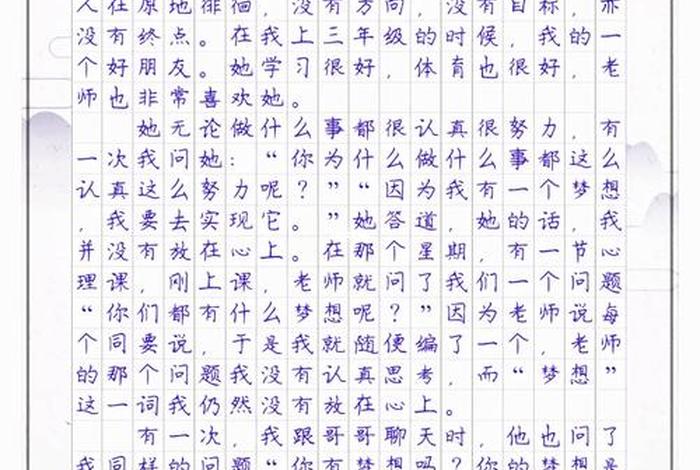 人在原地徘徊，没有方向，没有目标，亦
没有终点。在我上三年级的时候，我的一
个好朋友。她学习很好，体育也很好，老
师也非常喜欢她。
她无论做什么事都很认真很努力，有
一次我问她：“你为什么做什么事都这么
认真这么努力呢？”“因为我有一个梦想
，我要去实现它。”她答道，她的话，我
并没有放在心上。在那个星期，有一节心
理课，刚上课，老师就问了我们一个问题
“你们都有什么梦想呢？”因为老师说每
个同要说，于是我就随便编了一个，老师
的那个问题我没有认真思考，而“梦想”
这一词我仍然没有放在心上。
有一次，我跟哥哥聊天时，他也问了
我同样的问题“你有梦想吗？你的梦想是